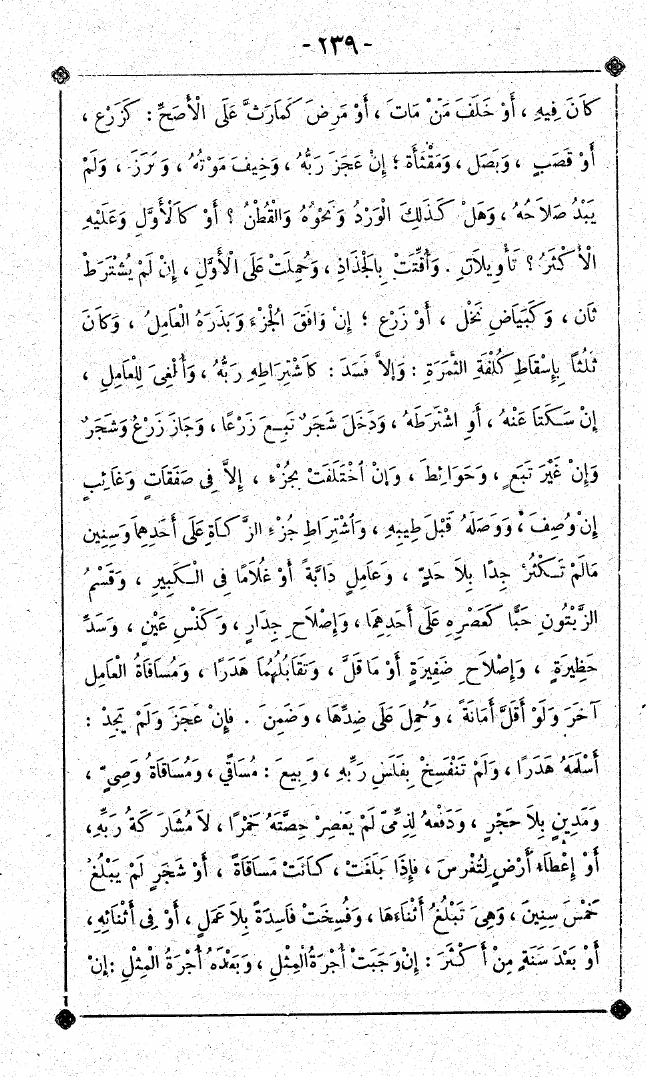 - ٢٣٩ -
كَانَ فِيهِ ، أَوْ خَلَفَ مَنْ مَاتَ ، أَوْ مَرِضَ كَمَارَثَّ عَلَى الْأَصَحِّ : كَزَرْعٍ ،
أَوْ قَصَبٍ ، وَبَصَلٍ ، وَمَقْثَأَةٍ ؛ إِنْ عَجَزَ رَبُّهُ ، وَخِيفَ مَوْتُهُ ، وَبَرَزَ ، وَلَمْ
يَبْدُ صَلَاحُهُ ، وَهَلْ كَذَلِكَ الْوَرْدُ وَنَحْوُهُ وَالْقُطْنُ ؟ أَوْ كَالْأَوَّلِ وَعَلَيْهِ
الْأَكْثَرُ ؟ تَأْوِيلَانِ . وَأُقِّتَتْ بِالْجَذَاذِ ، وَحُمِلَتْ عَلَى الْأَوَّلِ ، إِنْ لَمْ يُشْتَرَطْ
ثَانٍ ، وَكَبَيَاضِ نَخْلٍ ، أَوْ زَرْعٍ ؛ إِنْ وَافَقَ الْجُزْءَ وَبَذَرَهُ الْعَامِلُ ، وَكَانَ
ثُلُثًا بِإِسْقَاطِ كُلْفَةِ الثَّمَرَةِ : وَإِلاَّ فَسَدَ : كَاشْتِرَاطِهِ رَبُّهُ ، وَأُلْغِىَ لِلْعَامِلِ ،
إِنْ سَكَتَا عَنْهُ ، أَوِ اشْتَرَطَهُ ، وَدَخَلَ شَجَرٌ تَبِعَ زَرْعًا ، وَجَازَ زَرْعٌ وَشَجَرٌ
وَإِنْ غَيْرَ تَبَعٍ ، وَحَوَائِطَ ، وَإِنْ اخْتَلَفَتْ بِجُزْءٍ ، إِلاَّ فِى صَفَقَاتٍ وَغَائِبٍ
إِنْ وُصِفَ ، وَوَصَلَهُ قَبْلَ طِيبِهِ ، وَاشْتِرَاطِ جُزْءِ الزَّكَاةِ عَلَى أَحَدِهِمَا وَسِنِينَ
مَالَمْ تَكْثُرْ جِدًا بِلَا حَدٍّ ، وَعَامِلٍ دَابَّةً أَوْ غُلَامًا فِى الْكَبِيرِ ، وَقَسْمُ
الزَّيْتُونِ حَبًّا كَعَصْرِهِ عَلَى أَحَدِهِمَا ، وَإِصْلَاحِ جِدَارٍ ، وَكَنْسِ عَيْنٍ ، وَسَدِّ
حَظِيرَةٍ ، وَإِصْلَاحِ ضَفِيرَةٍ أَوْ مَا قَلَّ ، وَتَقَابُلُهُمَا هَدَرًا ، وَمُسَاقَاةُ الْعَامِلِ
آخَرَ وَلَوْ أَقَلَّ أَمَانَةً ، وَحُمِلَ عَلَى ضِدِّهَا ، وَضَمِنَ . فَإِنْ عَجَزَ وَلَمْ يَجِدْ :
أَسْلَمَهُ هَدَرًا ، وَلَمْ تَنْفَسِخْ بِفَلَسِ رَبِّهِ ، وَبِيعَ : مُسَاقًي ، وَمُسَاقَاةُ وَصِيٍّ ،
وَمَدِينٍ بِلَا حَجْرٍ ، وَدَفْعُهُ لِذِمِّىٍّ لَمْ يَعْصِرْ حِصَّتَهُ خَمْرًا ، لاَ مُشَارَكَةُ رَبِّهِ،
أَوْ إِعْطَاءُ أَرْضٍ لِتُغْرِسَ ، فَإِذَا بَلَغَتْ ، كَانَتْ مَسَاقَاةً ، أَوْ شَجَرٍ لَمْ يَبْلُغْ
خَمْسَ سِنِينَ ، وَهِىَ تَبْلُغُ أَثْنَاءَهَا ، وَفُسِخَتْ فَاسِدَةً بِلاَ عَمَلٍ ، أَوْ فِى أَثْنَائِهِ ،
أَوْ بَعْدَ سَنَةٍ مِنْ أَكْثَرَ : إِنْ وَجَبَتْ أُجْرَةُ الْمِثْلِ ، وَبَعْدَهُ أُجْرَةُ الْمِثْلِ : إِنْ